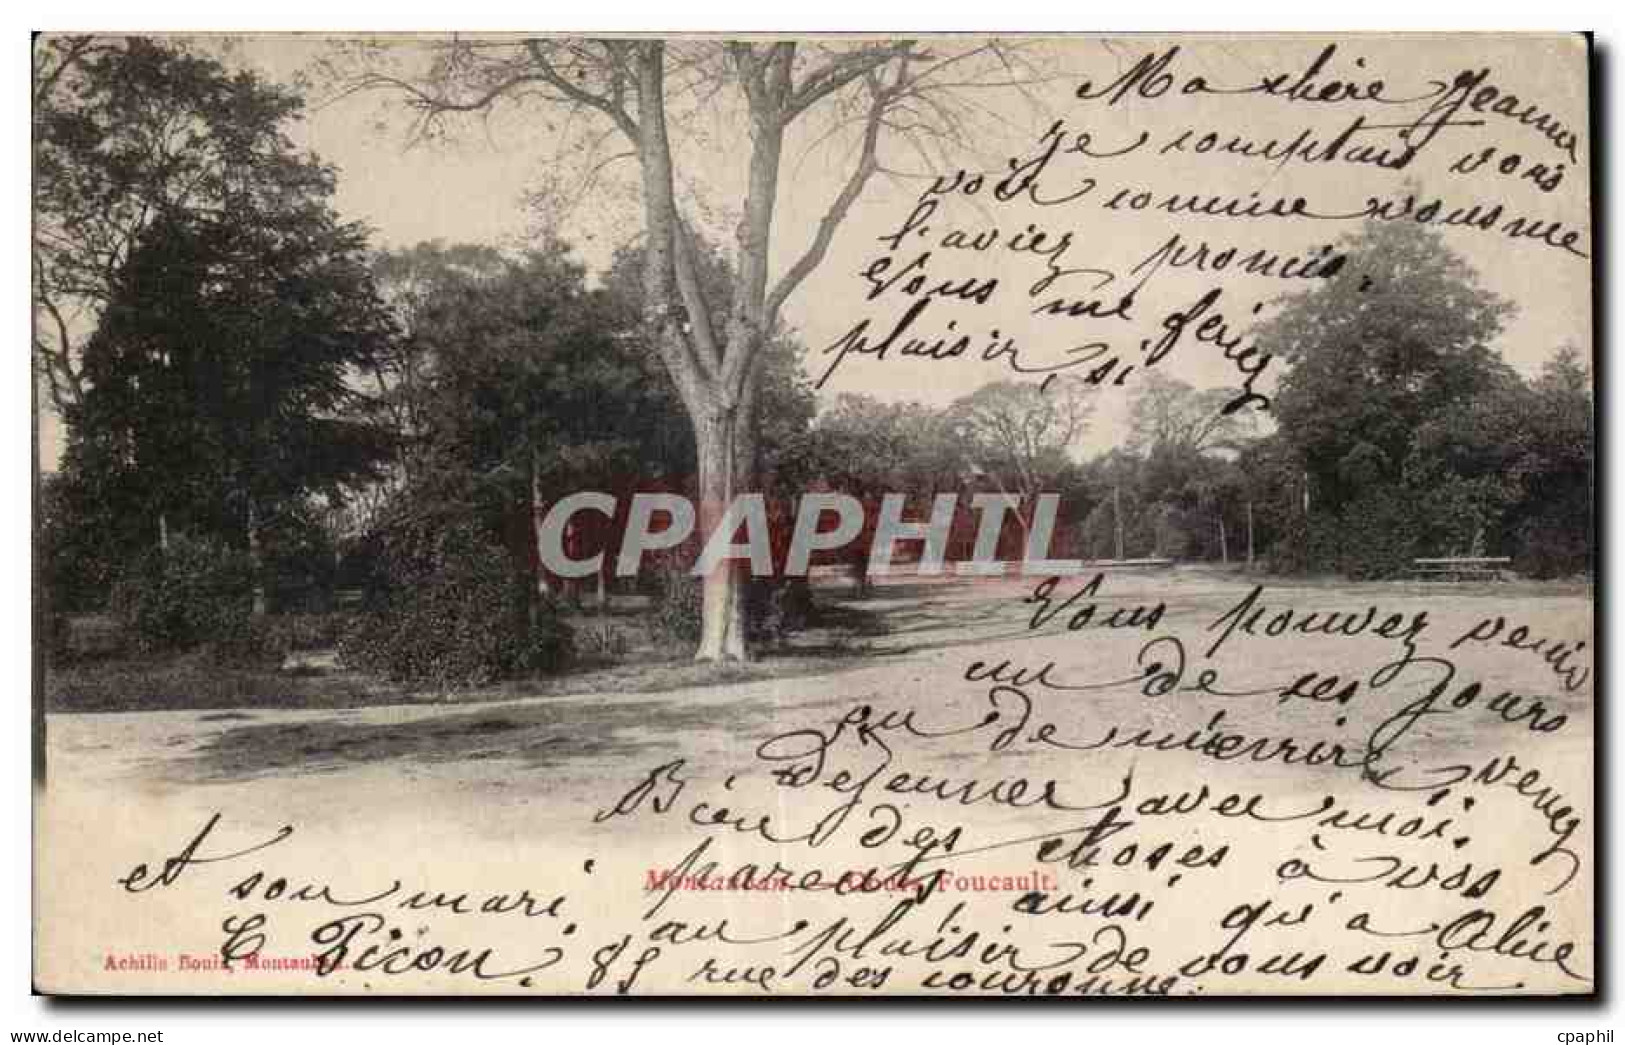 Ma chère Jeanne
Je comptais vous
voir comme vous me
l'aviez promis.
Vous me feriez
plaisir, si
CPAPHIL
Vous pouvez venir
un de ses jours
ou de m'écrire, venez
Déjeuner avec moi.
Bien des choses à vos
parents, ainsi qu'à Alice
et son mari, au plaisir de vous voir.
C Picon. 85 rue des couronne.
Montauban. — Cours Foucault.
Achille Bouis, Montauban.
cpaphil